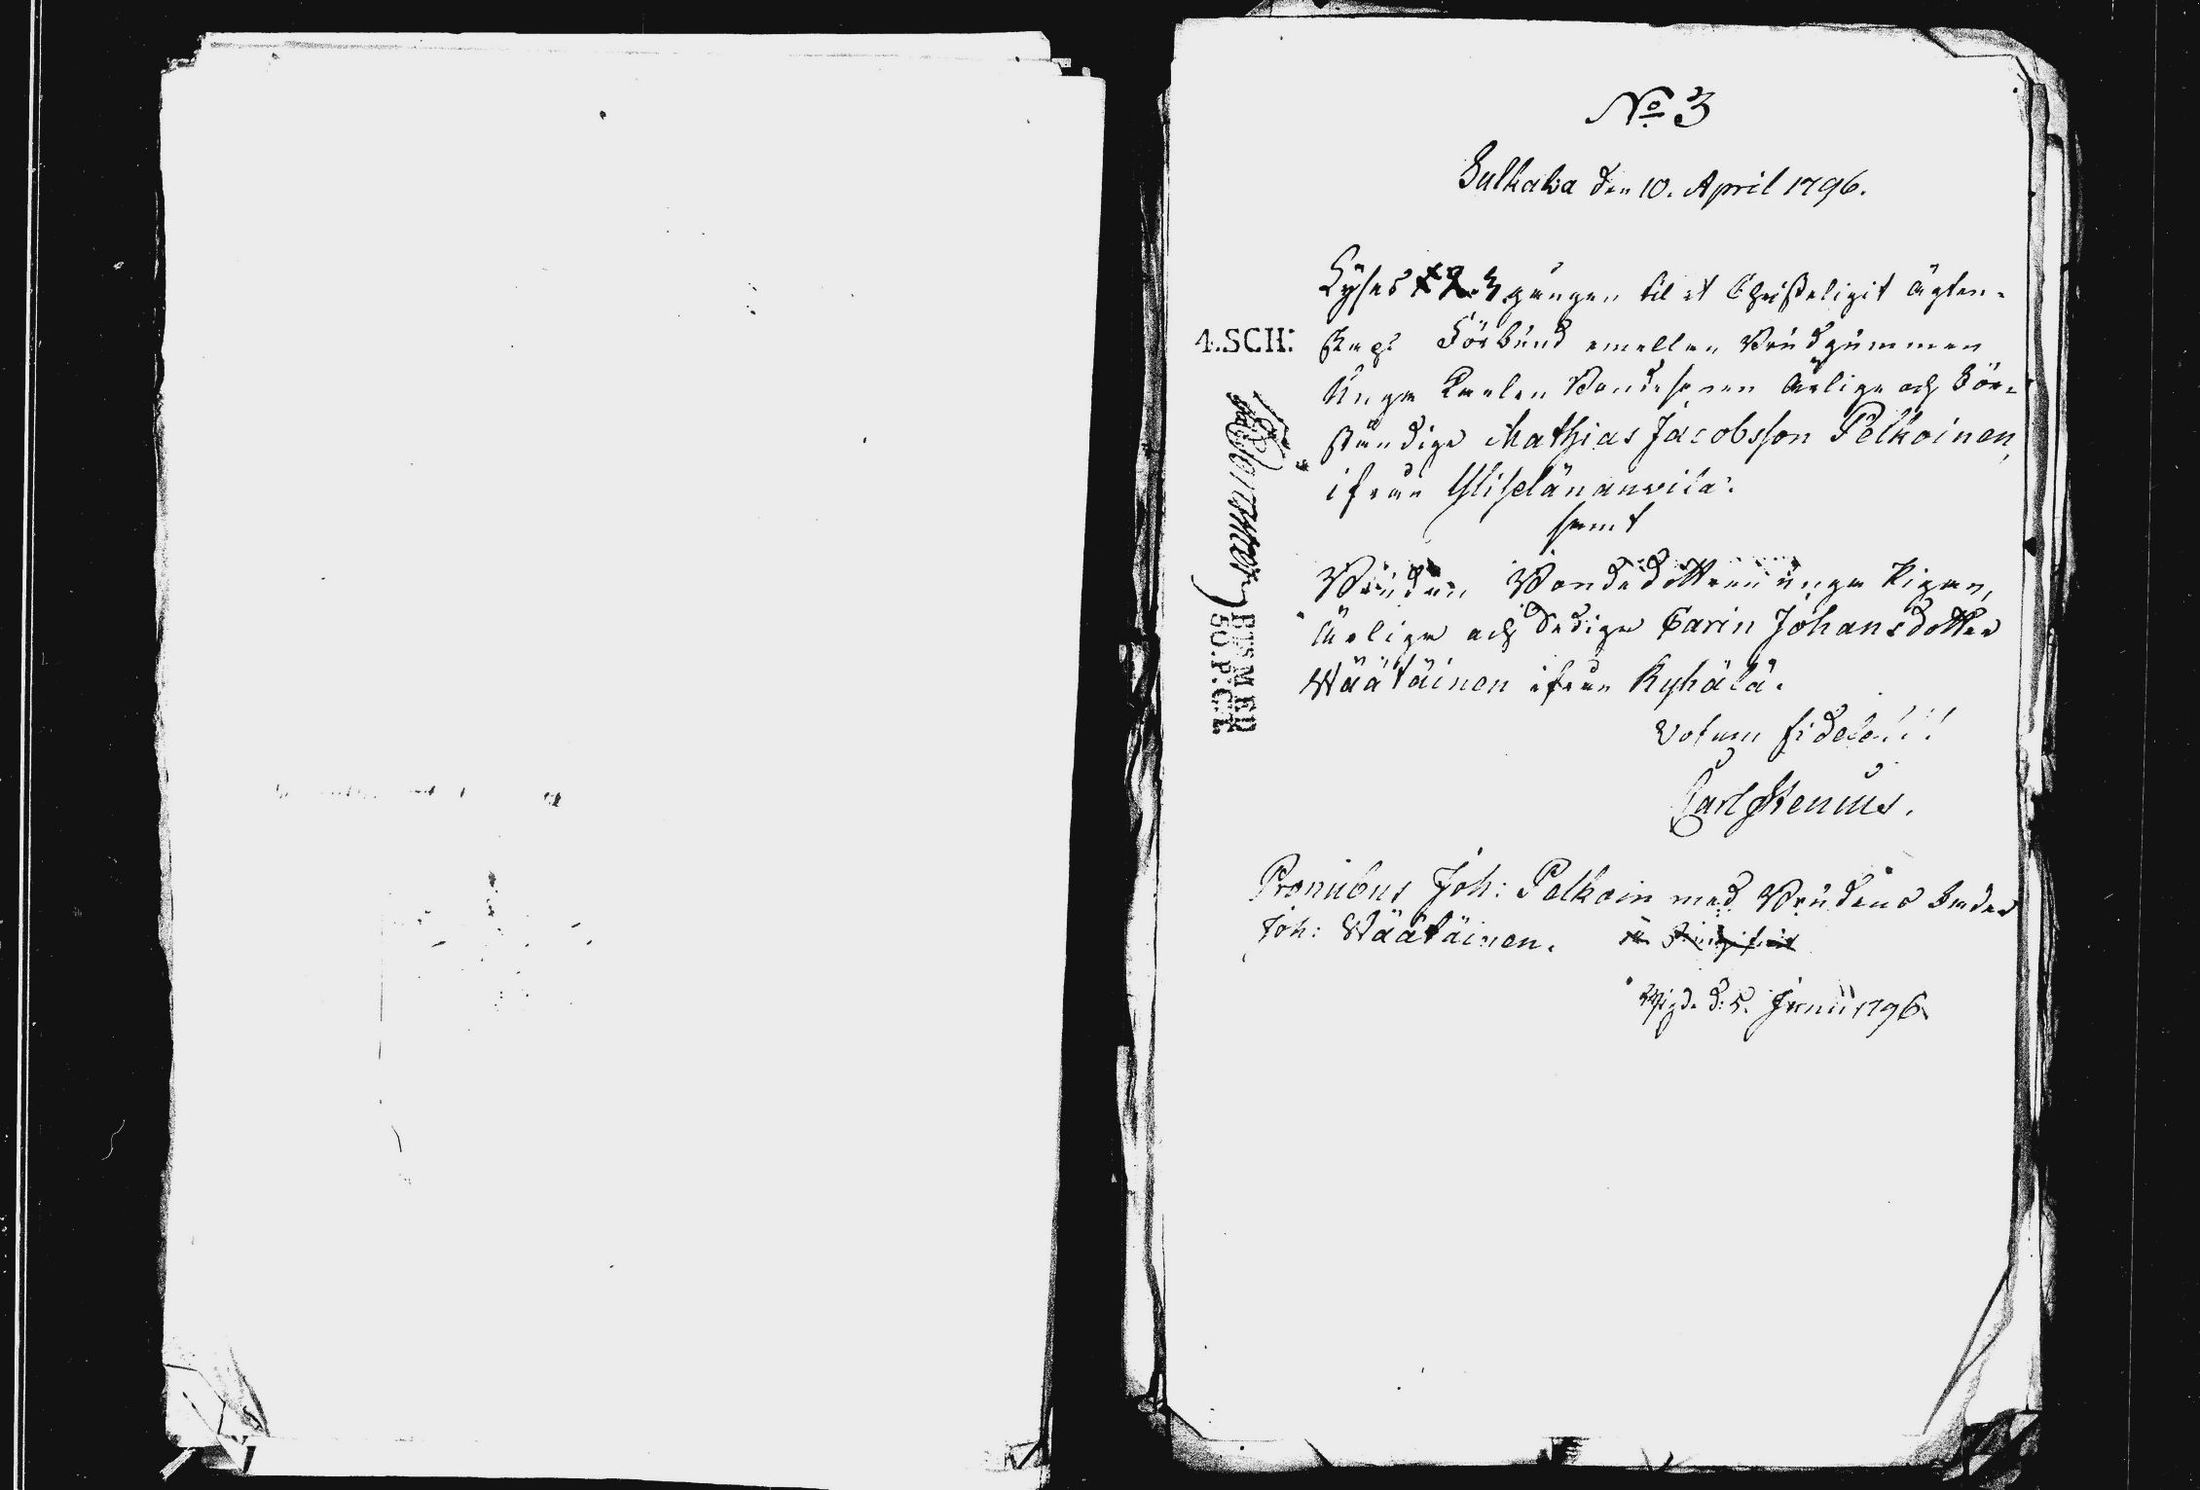 No 3
Sulkawa den 10. April 1796.
Lyses 1 2. 3 gången til et Christeligit ägten-
4.SCH:
skaps Förbund emellan Brudgummen
Unga Karlen Bondesonen ärlige och För-
ståndige Mathias Jacobsson Pelkoinen,
ifrån
samt
Bruden Bondedottren unga Pigan,
ärliga och Dediga Carin Johansdotter
Wäätäinen ifrån Kyhälä.
Votum fidele!!!
Carl Stenius.
Pronubus Joh: Pelkoin med Brudens Fader
Joh: Wäätäinen.
Wigde d. 5. Junii 1796.
50.P.C:T.